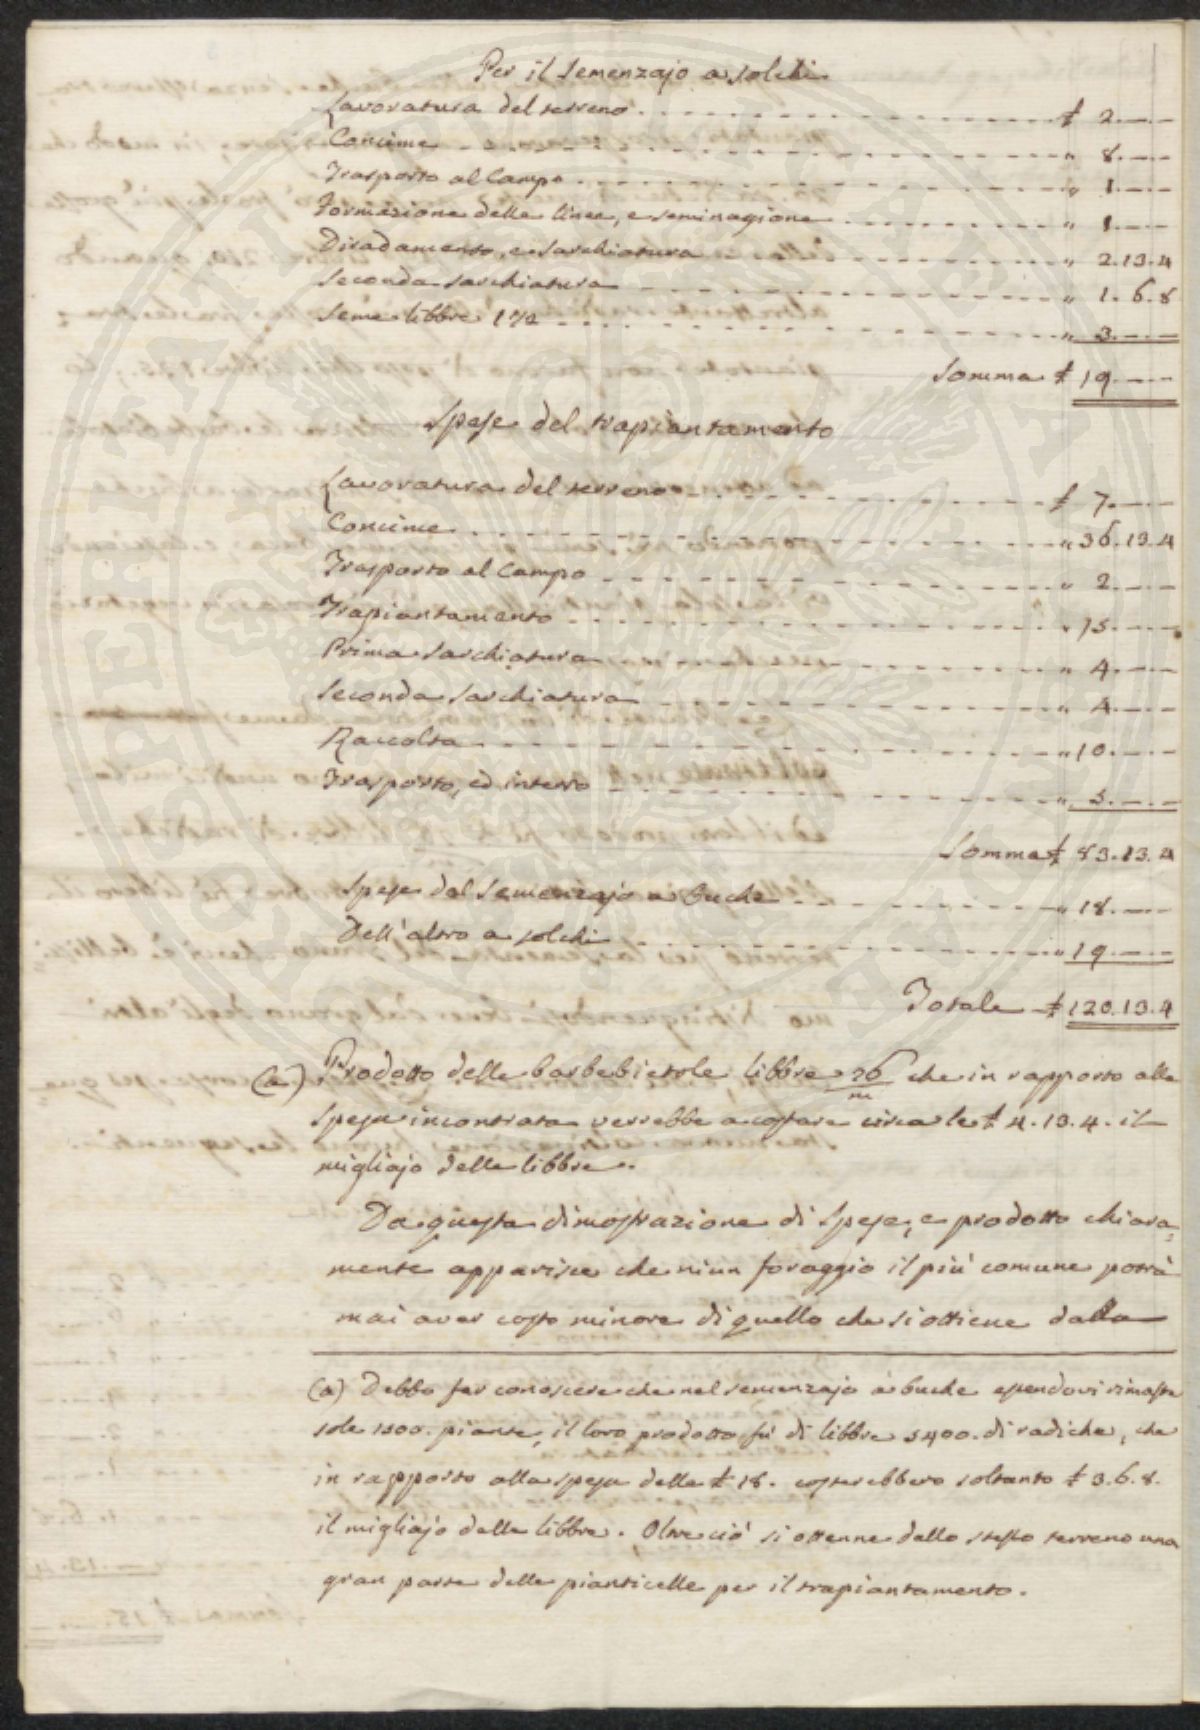 Per il Semenzajo a solchi
Lavoratura del terreno . - - - - - ₤ 2.—.—
Concime - - - - - " 8.—.—
Trasporto al Campo - - - - - " 1.—.—
Formazione delle linee, e seminagione - - - - - " 1.—.—
Diradamento, e Sarchiatura - - - - - " 2.13.4
Seconda sarchiatura - - - - - " 1.6.8
Seme libbre 1 1/2 - - - - - " 3.—.—
Somma ₤ 19.—.—
Spese del trapiantamento
Lavoratura del terreno - - - - - ₤ 7.—.—
Concime - - - - - " 36.13.4
Trasporto al Campo - - - - - " 2.—.—
Trapiantamento - - - - - " 15.—.—
Prima Sarchiatura - - - - - " 4.—.—
Seconda Sarchiatura - - - - - " 4.—.—
Raccolta - - - - - " 10.—.—
Trasporto, ed interro - - - - - " 5.—.—
Somma ₤ 83.13.4
Spese del Semenzajo a buche - - - - - " 18.—.—
Dell'altro a solchi - - - - - " 19.—.—
Totale ₤ 120.13.4
(a) Prodotto delle barbebietole libbre 26/m che in rapporto alla
spesa incontrata verrebbe a costare circa le ₤ 4.13.4. il
migliajo delle libbre.
Da questa dimostrazione di spese, e prodotto chiara=
mente apparisce che niun foraggio il più comune potrà
mai aver costo minore di quello che si ottiene dalla
(a) Debbo far conoscere che nel semenzajo a buche essendovi rimaste
sole 1300. piante, il loro prodotto fù di libbre 5400. di radiche, che
in rapporto alla spesa delle ₤ 18. costerebbero soltanto ₤ 3.6.8.
il migliajo delle libbre. Oltre ciò si ottenne dallo stesso terreno una
gran parte delle pianticelle per il trapiantamento.